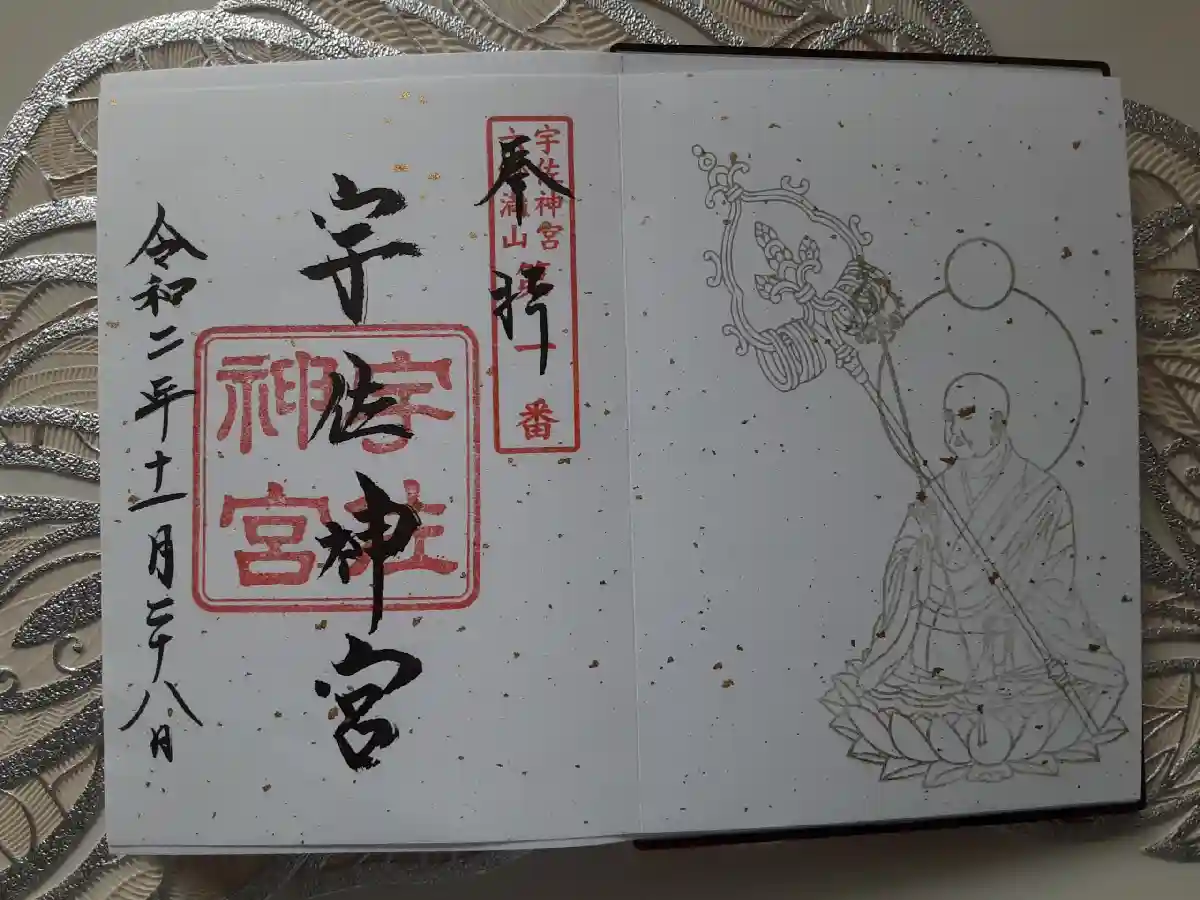 奉拝
宇佐神宮
六郷満山
第一番
宇佐神宮
宇佐
神宮
令和二年十一月二十八日